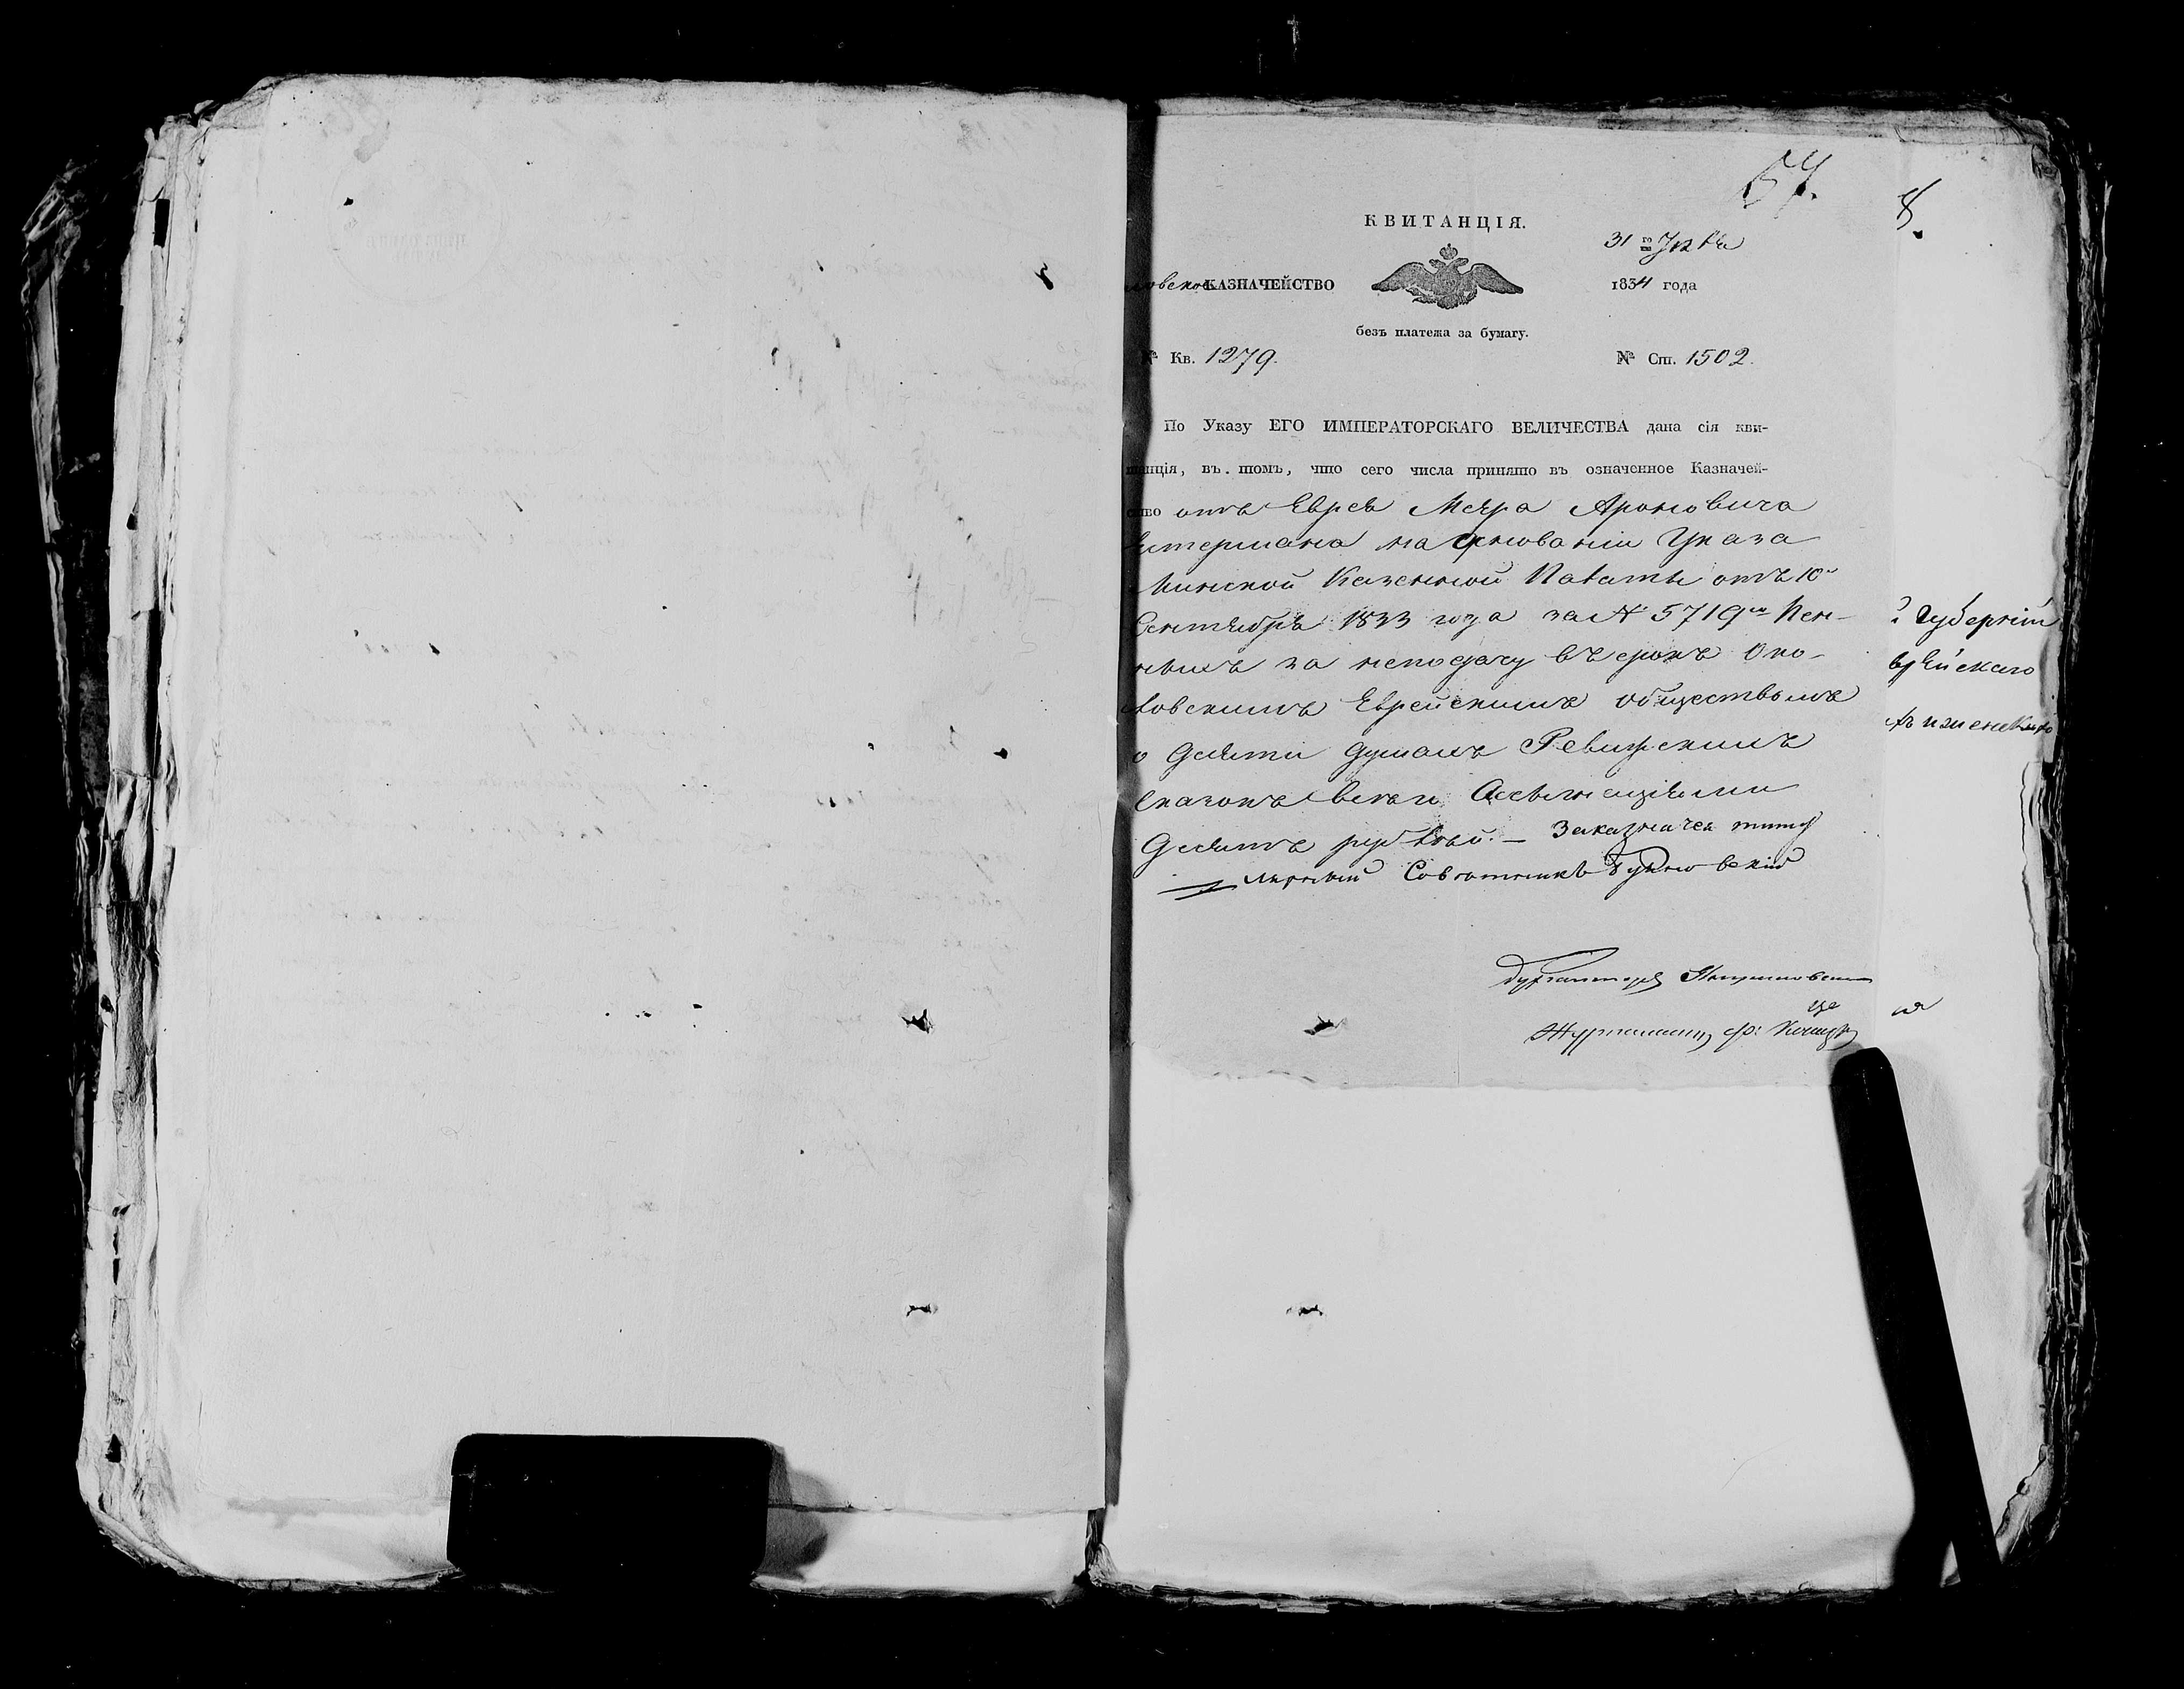 57.
8.
КВИТАНЦІЯ.
31 го
КАЗНАЧЕЙСТВО
1834 года
безъ платежа за бумагу.
№ Кв. 1279.
№ Ст. 1502.
По Указу ЕГО ИМПЕРАТОРСКАГО ВЕЛИЧЕСТВА дана сія кви-
танція, въ томъ, что сего числа принято въ означенное Казначей-
ство отъ Еврея Меера Ароновича
на основаніи Указа
Минской Казенной Палаты отъ 10
Сентября 1833 года за № 5719 Пен-
ныхъ за неподачу въ срокъ Око-
ловскимъ Еврейскимъ обществомъ
о десяти душахъ Ревижскихъ
сказокъ всего Ассигнаціями
Десять рублей. — Заказначея титу
лярный Советникъ
Бухгалтеръ
Губерніи